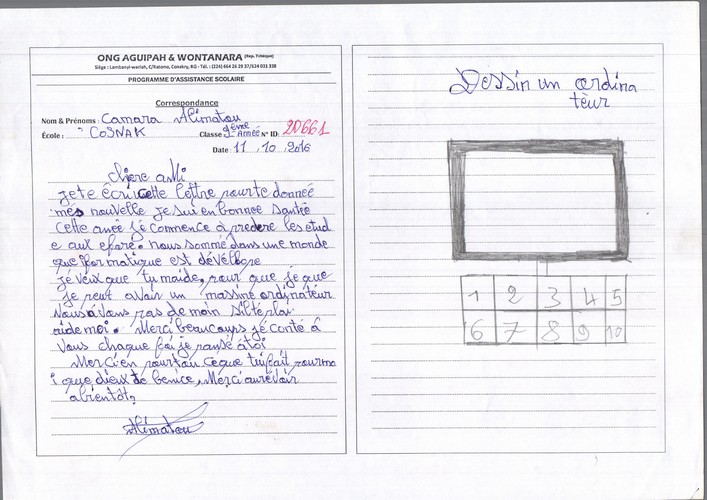 ONG AGUIPAH & WONTANARA (Rep. Tchèque)
Siège : Lambanyi-wariah, C/Ratoma, Conakry, RG - Tél. : (224) 664 26 29 37/624 033 338
PROGRAMME D'ASSISTANCE SCOLAIRE
Correspondance
Nom & Prénoms : Camara Alimatou
École : COSNAK Classe 9ème Année N° ID: 20661
Date : 11, 10, 2016
chère ami
je te écri cette lettre pour te donneé
mes nouvelle je sui en bonnee santé
cette aneé jé commence à predere les etud
e aux efore. nous sommé dans une monde
que formatique est dévéllope
jé veux que tu maide, pour que je que
je peut avoir un massine ordinateur
nous avons pas de moin silteplai
aide moi. Merci beaucoups jé conté à
vous chaque foi je pansé à toi
Merci en pour tou cèque tu fait pour mo
i que dieux te benice, Merci aurevoir
abientôt,
Alimatou
Dessin un ordina
teur
1 2 3 4 5
6 7 8 9 10